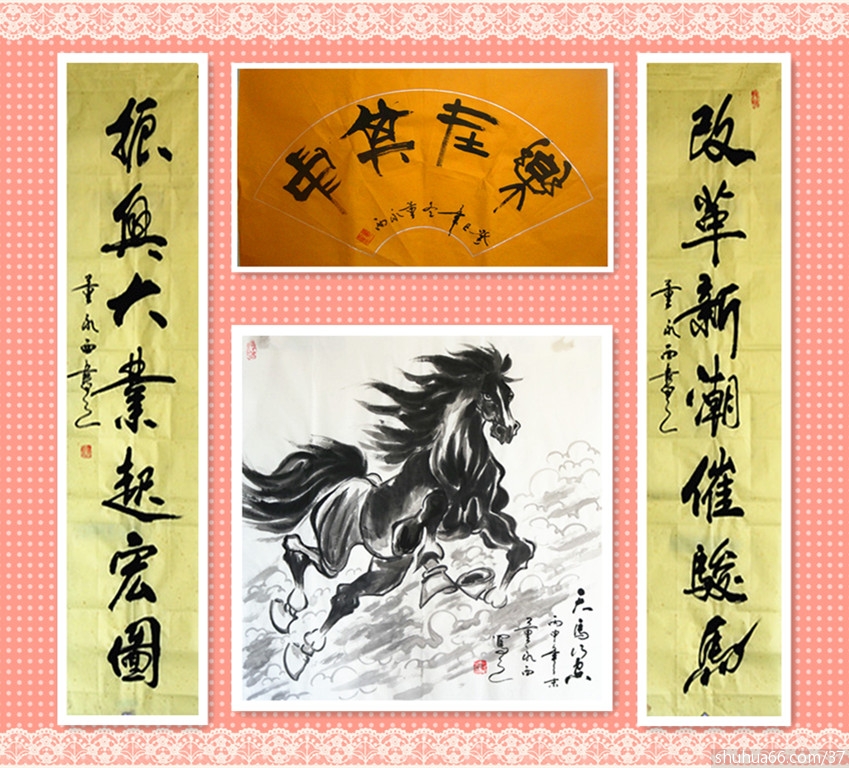 改革新潮催駿馬
董永西書之
樂在其中
癸巳年冬董永西
振興大業起宏圖
董永西書之
天馬行空
丙申年
董永西
寫之
shuhua66.com/37